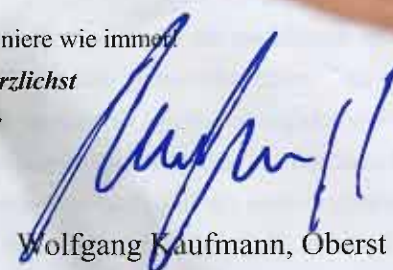 niere wie immer!
rzlichst
Wolfgang Kaufmann, Oberst